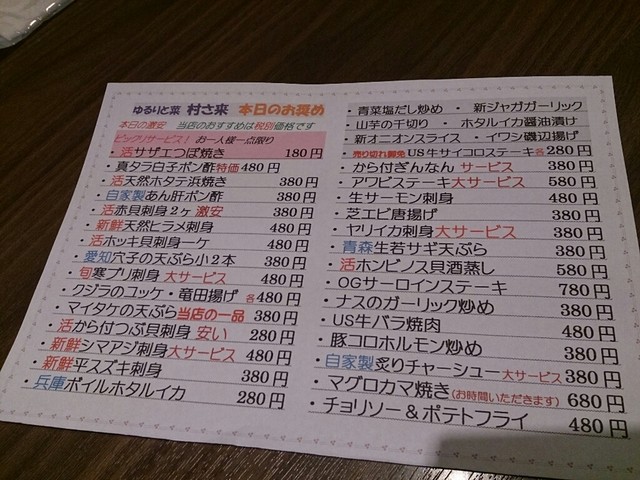 ゆるりと菜 村さ来 本日のお奨め
本日の激安 当店のおすすめは税別価格です
ビックリサービス! お一人様一点限り
・活サザエつぼ焼き 180円
・真タラ白子ポン酢特価480円
・活天然ホタテ浜焼き 380円
・自家製あん肝ポン酢 380円
・活赤貝刺身2ヶ 激安 380円
・新鮮天然ヒラメ刺身 480円
・活ホッキ貝刺身一ケ 480円
・愛知穴子の天ぷら小2本 380円
・旬寒ブリ刺身 大サービス 480円
・クジラのユッケ・竜田揚げ 各480円
・マイタケの天ぷら当店の一品 380円
・活から付つぶ貝刺身 安い 280円
・新鮮シマアジ刺身大サービス 480円
・新鮮平スズキ刺身 380円
・兵庫ボイルホタルイカ 280円
・青菜塩だし炒め ・ 新ジャガガーリック
・山芋の千切り ・ ホタルイカ醤油漬け
・新オニオンスライス ・ イワシ磯辺揚げ
・売り切れ御免 US牛サイコロステーキ各280円
・から付ぎんなん サービス 380円
・アワビステーキ大サービス 580円
・生サーモン刺身 480円
・芝エビ唐揚げ 380円
・ヤリイカ刺身大サービス 380円
・青森生若サギ天ぷら 380円
・活ホンビノス貝酒蒸し 580円
・OGサーロインステーキ 780円
・ナスのガーリック炒め 380円
・US牛バラ焼肉 480円
・豚コロホルモン炒め 380円
・自家製炙りチャーシュー大サービス380円
・マグロカマ焼き(お時間いただきます) 680円
・チョリソー&ポテトフライ 480円